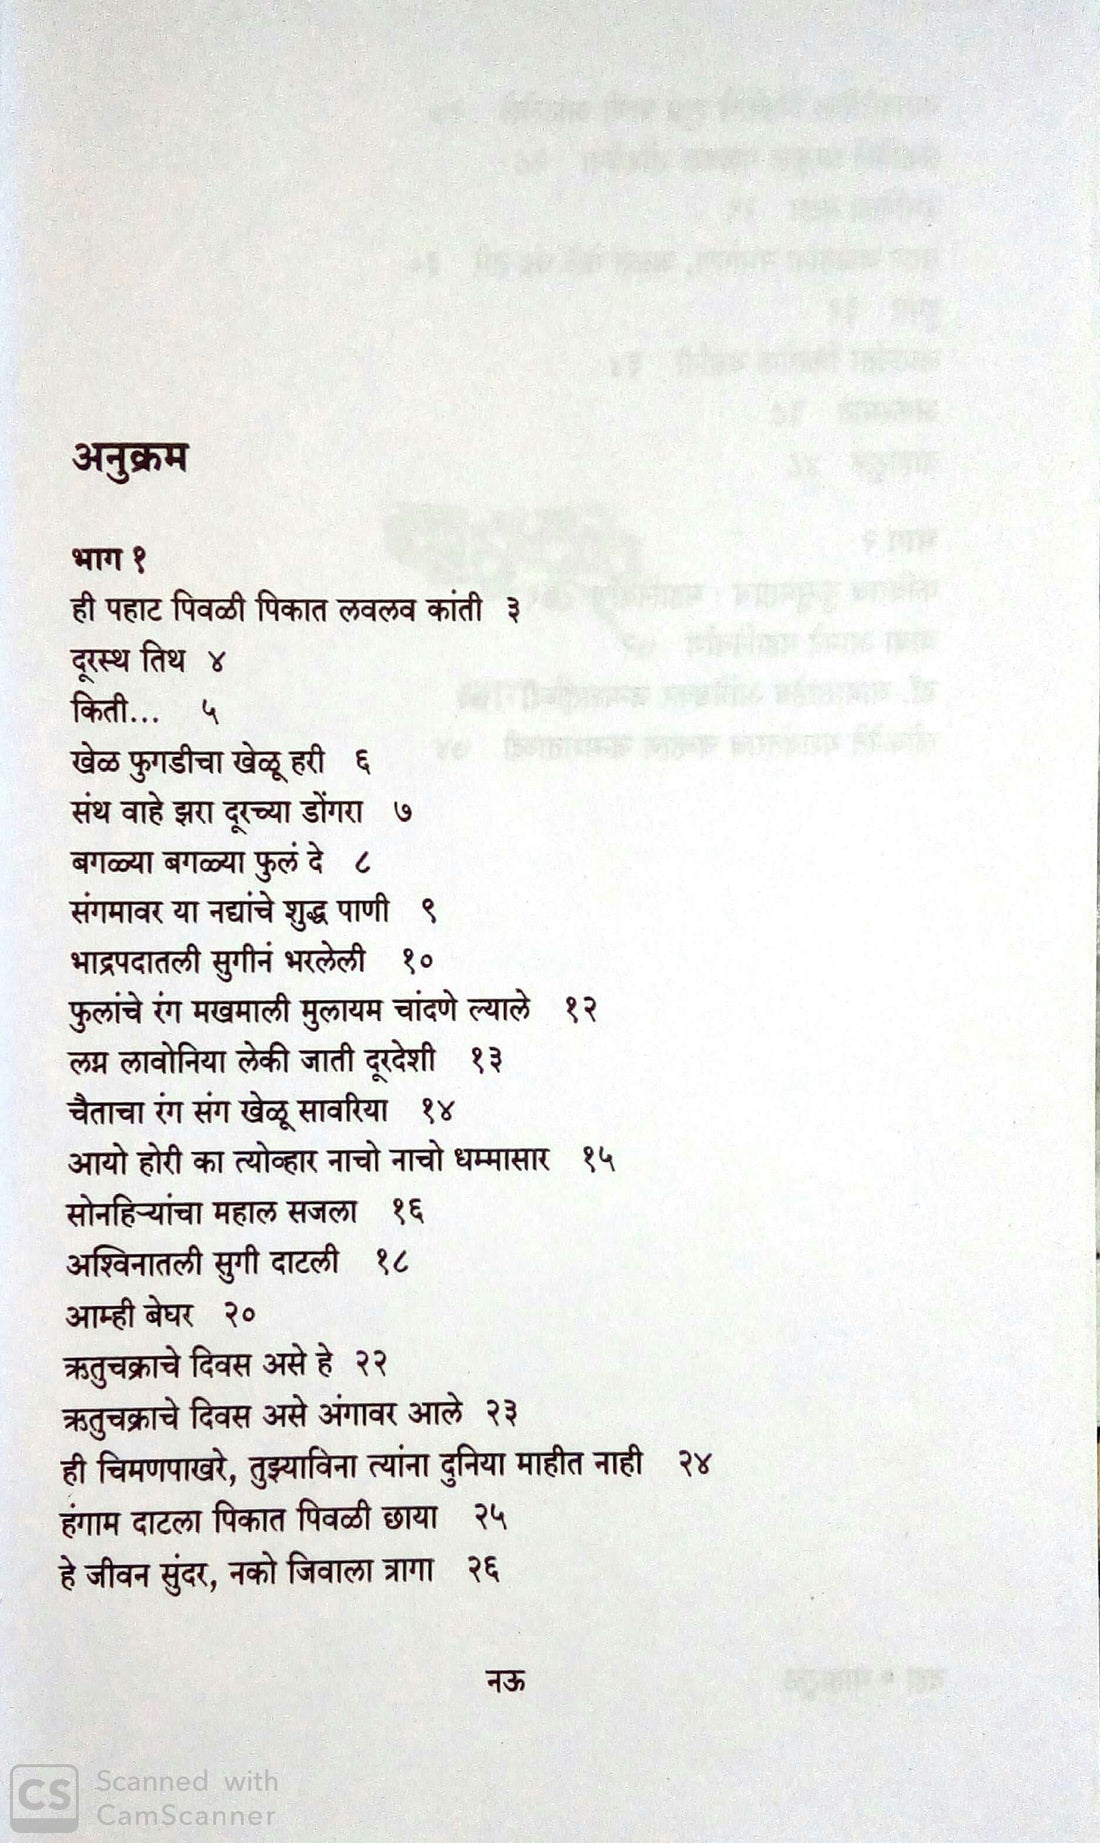 अनुक्रम
भाग १
ही पहाट पिवळी पिकात लवलव कांती ३
दूरस्थ तिथ ४
किती... ५
खेळ फुगडीचा खेळू हरी ६
संथ वाहे झरा दूरच्या डोंगरा ७
बगळ्या बगळ्या फुलं दे ८
संगमावर या नद्यांचे शुद्ध पाणी ९
भाद्रपदातली सुगीनं भरलेली १०
फुलांचे रंग मखमाली मुलायम चांदणे ल्याले १२
लग्न लावोनिया लेकी जाती दूरदेशी १३
चैताचा रंग संग खेळू सावरिया १४
आयो होरी का त्योव्हार नाचो नाचो धम्मासार १५
सोनहिऱ्यांचा महाल सजला १६
अश्विनातली सुगी दाटली १८
आम्ही बेघर २०
ऋतुचक्राचे दिवस असे हे २२
ऋतुचक्राचे दिवस असे अंगावर आले २३
ही चिमणपाखरे, तुझ्याविना त्यांना दुनिया माहीत नाही २४
हंगाम दाटला पिकात पिवळी छाया २५
हे जीवन सुंदर, नको जिवाला त्रागा २६
नऊ
CS Scanned with
CamScanner